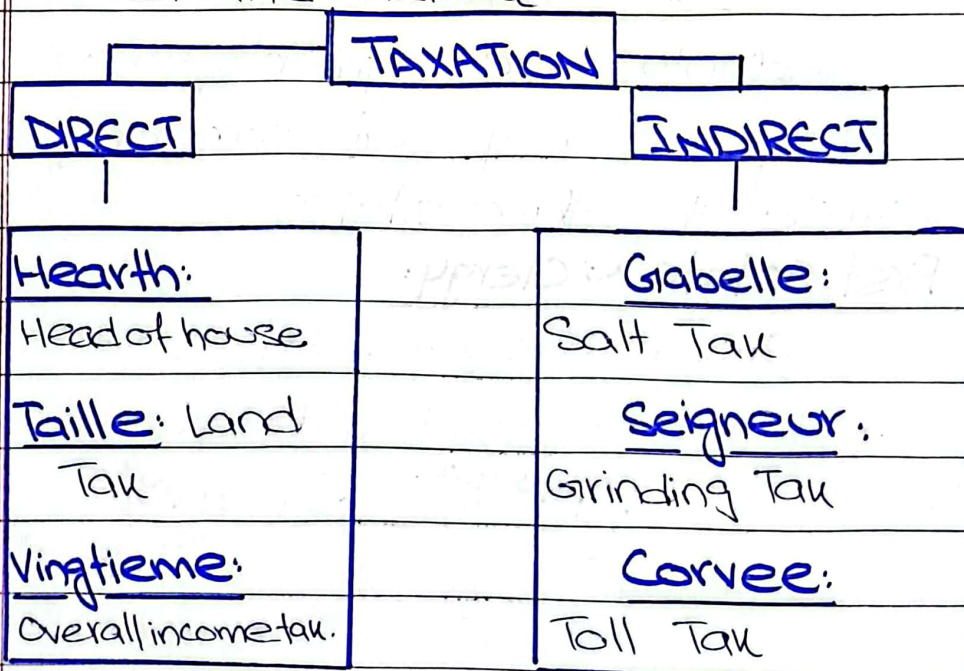 TAXATION
DIRECT
INDIRECT
Hearth:
Head of house
Taille: Land
Tax
Vingtieme:
Overall income tax.
Gabelle:
Salt Tax
Seigneur:
Grinding Tax
Corvee:
Toll Tax